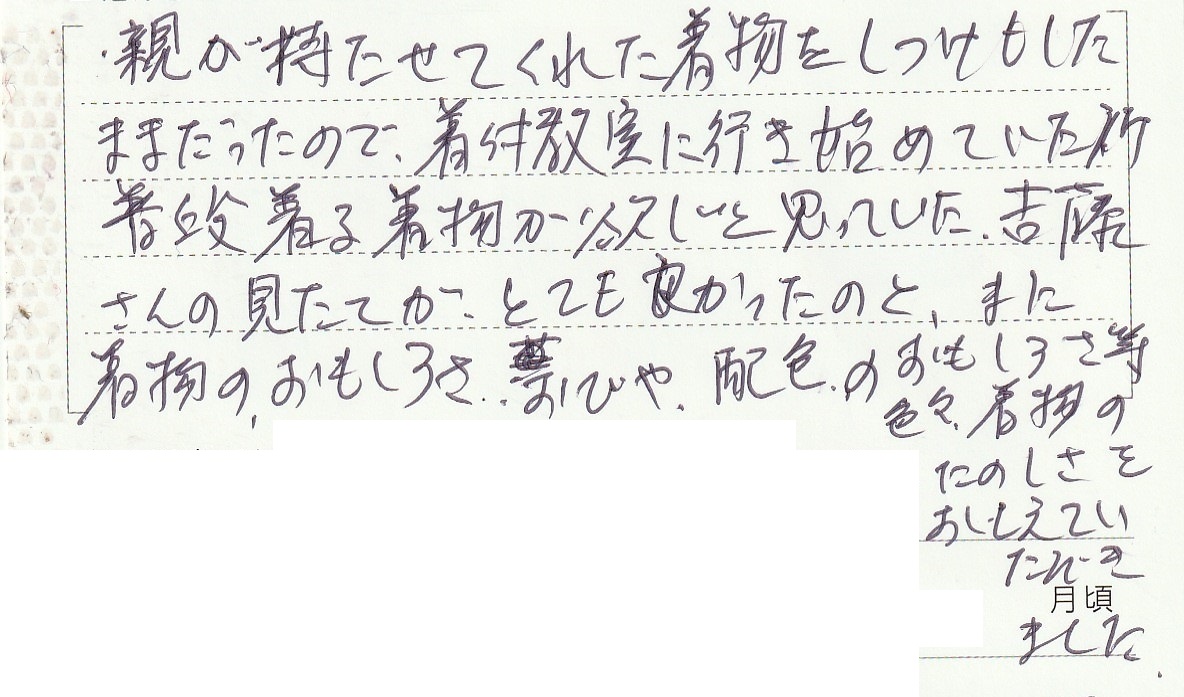 ・親が持たせてくれた着物をしつけもした
ままだったので、着付教室に行き始めていた所
普段着る着物が欲しいと思っていた、吉藤
さんの見たてがとても良かったのと、また
着物の、おもしろさ、、おびや、配色、のおもしろさ等
色々、着物の
たのしさを
おしえてい
ただき
月頃
ました